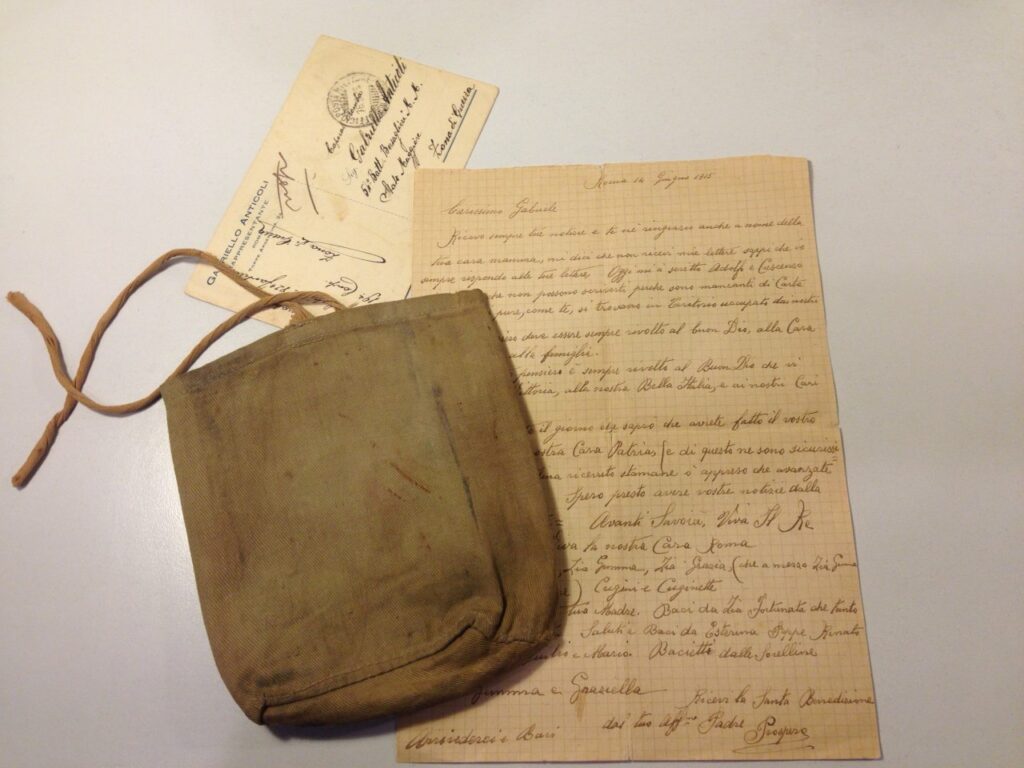 Gabriello Anticoli
Stato Maggiore
Zona di Guerra
GABRIELLO ANTICOLI
RAPPRESENTANTE
ROMA
Roma 14 Giugno 1915
Carissimo Gabriele
Ricevo sempre tue notizie e ti ne ringrazio anche a nome della
tua cara mamma, mi dici che non ricevi mie lettere sappi che io
sempre rispondo alle tue lettere. Oggi mi a scritto Adolfo e Crescenzo
che non possono scriverti perche sono mancanti di Carte
pure, come te, si trovano in Territorio occupato dai nostri
deve essere sempre rivolto al buon Dio, alla Cara
alla famiglia.
pensiero e sempre rivolto al Buon Dio che vi
alla nostra Bella Italia, e ai nostri Cari
il giorno che saprò che avrete fatto il vostro
Cara Patria, (e di questo ne sono sicurissi
ricevuto stamane ò appreso che avanzate
Spero presto avere vostre notizie dalla
Avanti Savoia, Viva Il Re
la nostra Cara Roma
Zia Gemma, Zia Grazia, (che a mezzo Zia Gemma
) Cugini e Cuginette
tua Madre. Baci da Zia Fortunata che tanto
Saluti e Baci da Esterina Peppe Renato
e Mario. Bacietti dalle Sorelline
Gemma e Graziella
Ricevi la Santa Benedizione
dal tuo aff.mo Padre
Prospero
Arrivederci e Baci